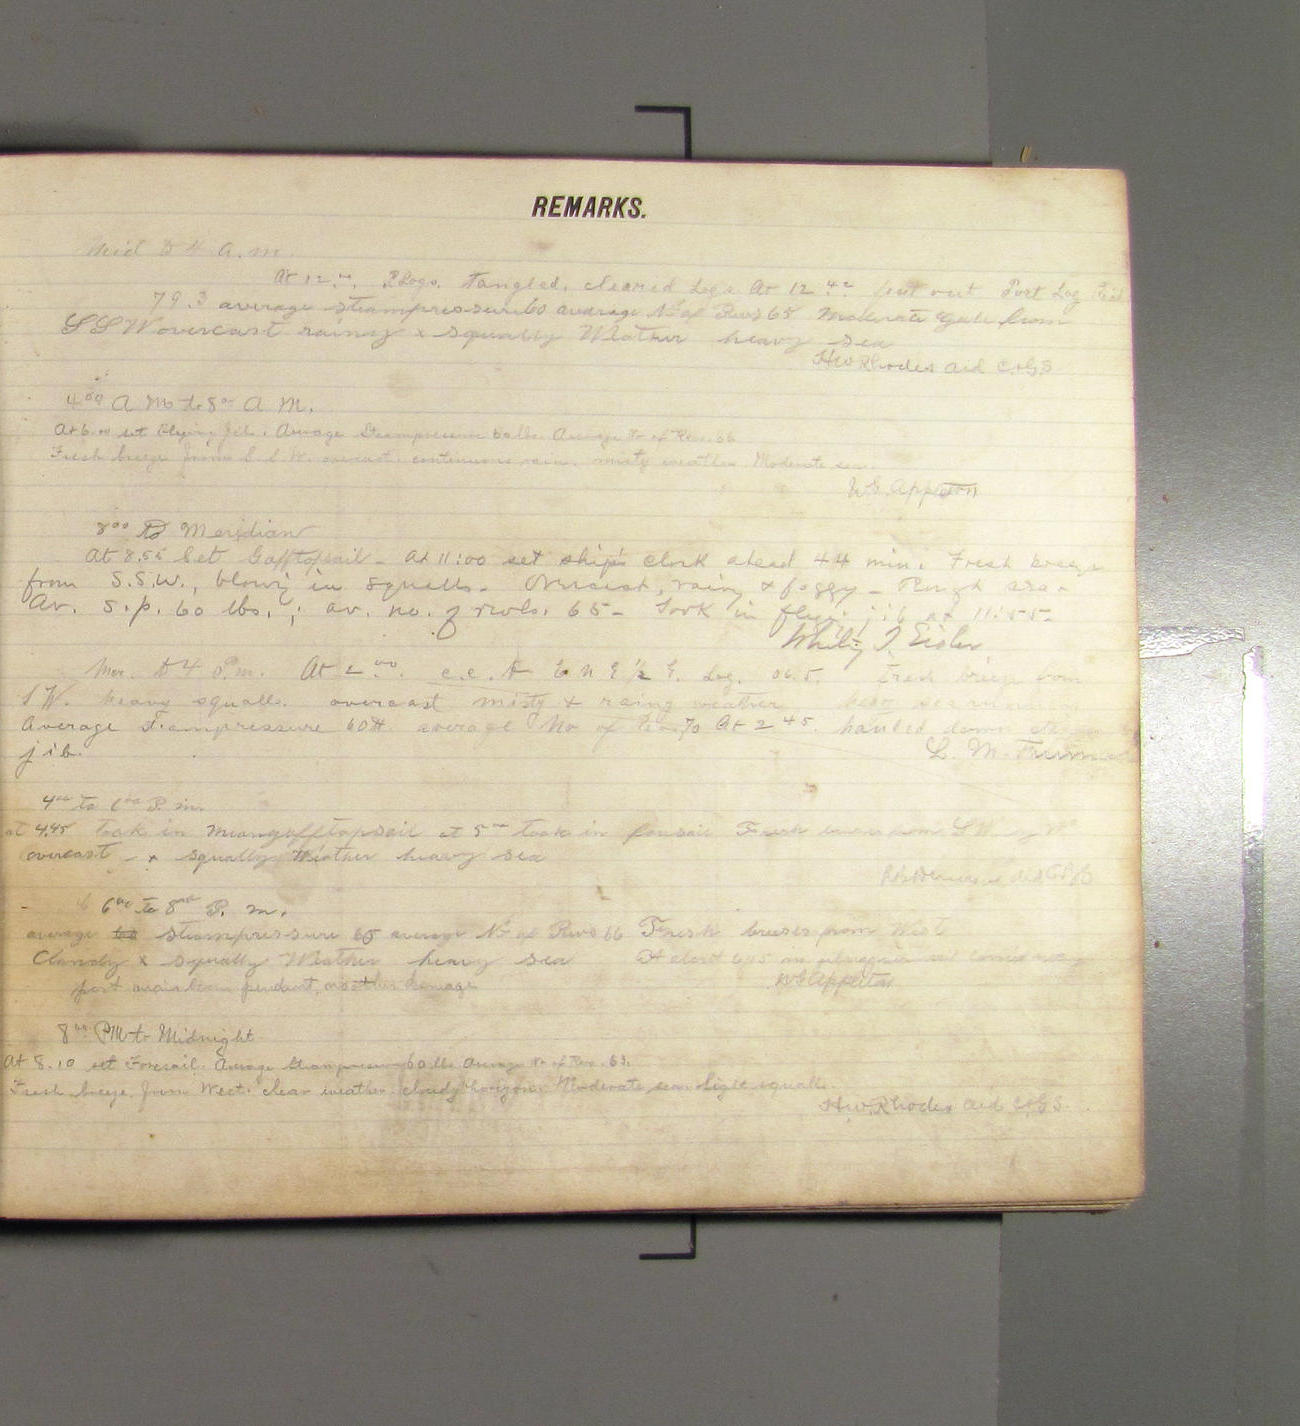 REMARKS.
Mid to 4 A.m.
At 12.00. P. Logs. Tangled. cleared Logs At 12 42 put out Port Log
79.3 average steampressure 60 average No of Revs 65 Moderate Gale from
SSW overcast rainy & squally Weather heavy sea
HW Rhodes aid C&GS
4 00 A M to 8 00 A M.
At 6.00 set Flying Jib. Average Steampressure 60 lbs. Average No of Rev. 66
Fresh breeze from S S W. overcast. continuous rain. misty weather. Moderate sea.
W.G. Appleton
8 00 to Meridian
At 8.55 Set Gafftopsail - At 11:00 set ship's clock ahead 44 min. Fresh breeze
from S.S.W., blowing in squalls. Overcast, rainy & foggy - Rough sea.
Av. S.p. 60 lbs.; av. no. of revls. 65 - Took in flying jib at 11:55.
Mer. to 4 P.m. At 2 00. c.c. to E N E 1/2 E. Log. 06.5. Fresh breeze from
S W. heavy squalls. overcast misty & rainy weather
Average steampressure 60#. average No of Revs 70 At 2 45. hauled down
jib. L. M.
4 00 to 6 00 P. m.
at 4.45 took in gafftopsail at 5 00 took in foresail Fresh from SW
overcast - & squally Weather heavy sea
6 00 to 8 00 P. m.
average steampressure 65 average No of Revs 66 Fresh breeze from West
Cloudy & squally Weather heavy sea At about 6.45
port pendant, no other damage W G Appleton
8 00 PM to Midnight
At 8.10 set Foresail. Average Steampressure 60 lbs Average No of Rev. 63.
Fresh breeze from West. clear weather. cloudy horizon. Moderate sea. light squalls.
H.W. Rhodes aid C&GS.